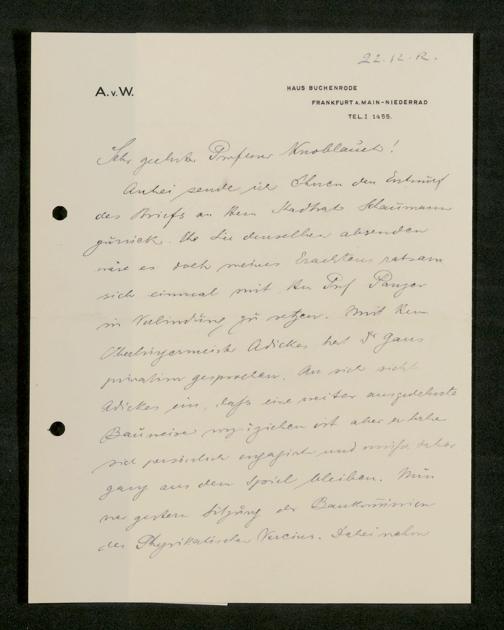 22.12.12.
A.v.W.
HAUS BUCHENRODE
FRANKFURT A. MAIN-NIEDERRAD
TEL. I 1455.
Sehr geehrter Professor Knoblauch!
Anbei sende ich Ihnen den Entwurf
des Briefs an Herrn Stadtrat Schaumann
zurück. Ehe Sie denselben absenden
wäre es doch meines Erachtens ratsam
sich einmal mit Herrn Prof Panzer
in Verbindung zu setzen. Mit Herrn
Oberbürgermeister Adickes hat Dr Gans
privatim gesprochen. An sich sieht
Adickes ein, dass eine weiter ausgedehnte
Bauweise vorzuziehen ist aber er habe
sich persönlich engagirt und müsse daher
ganz aus dem Spiel bleiben. Nun
war gestern Sitzung der Baukommission
des Physikalischen Vereins. Dabei nahm